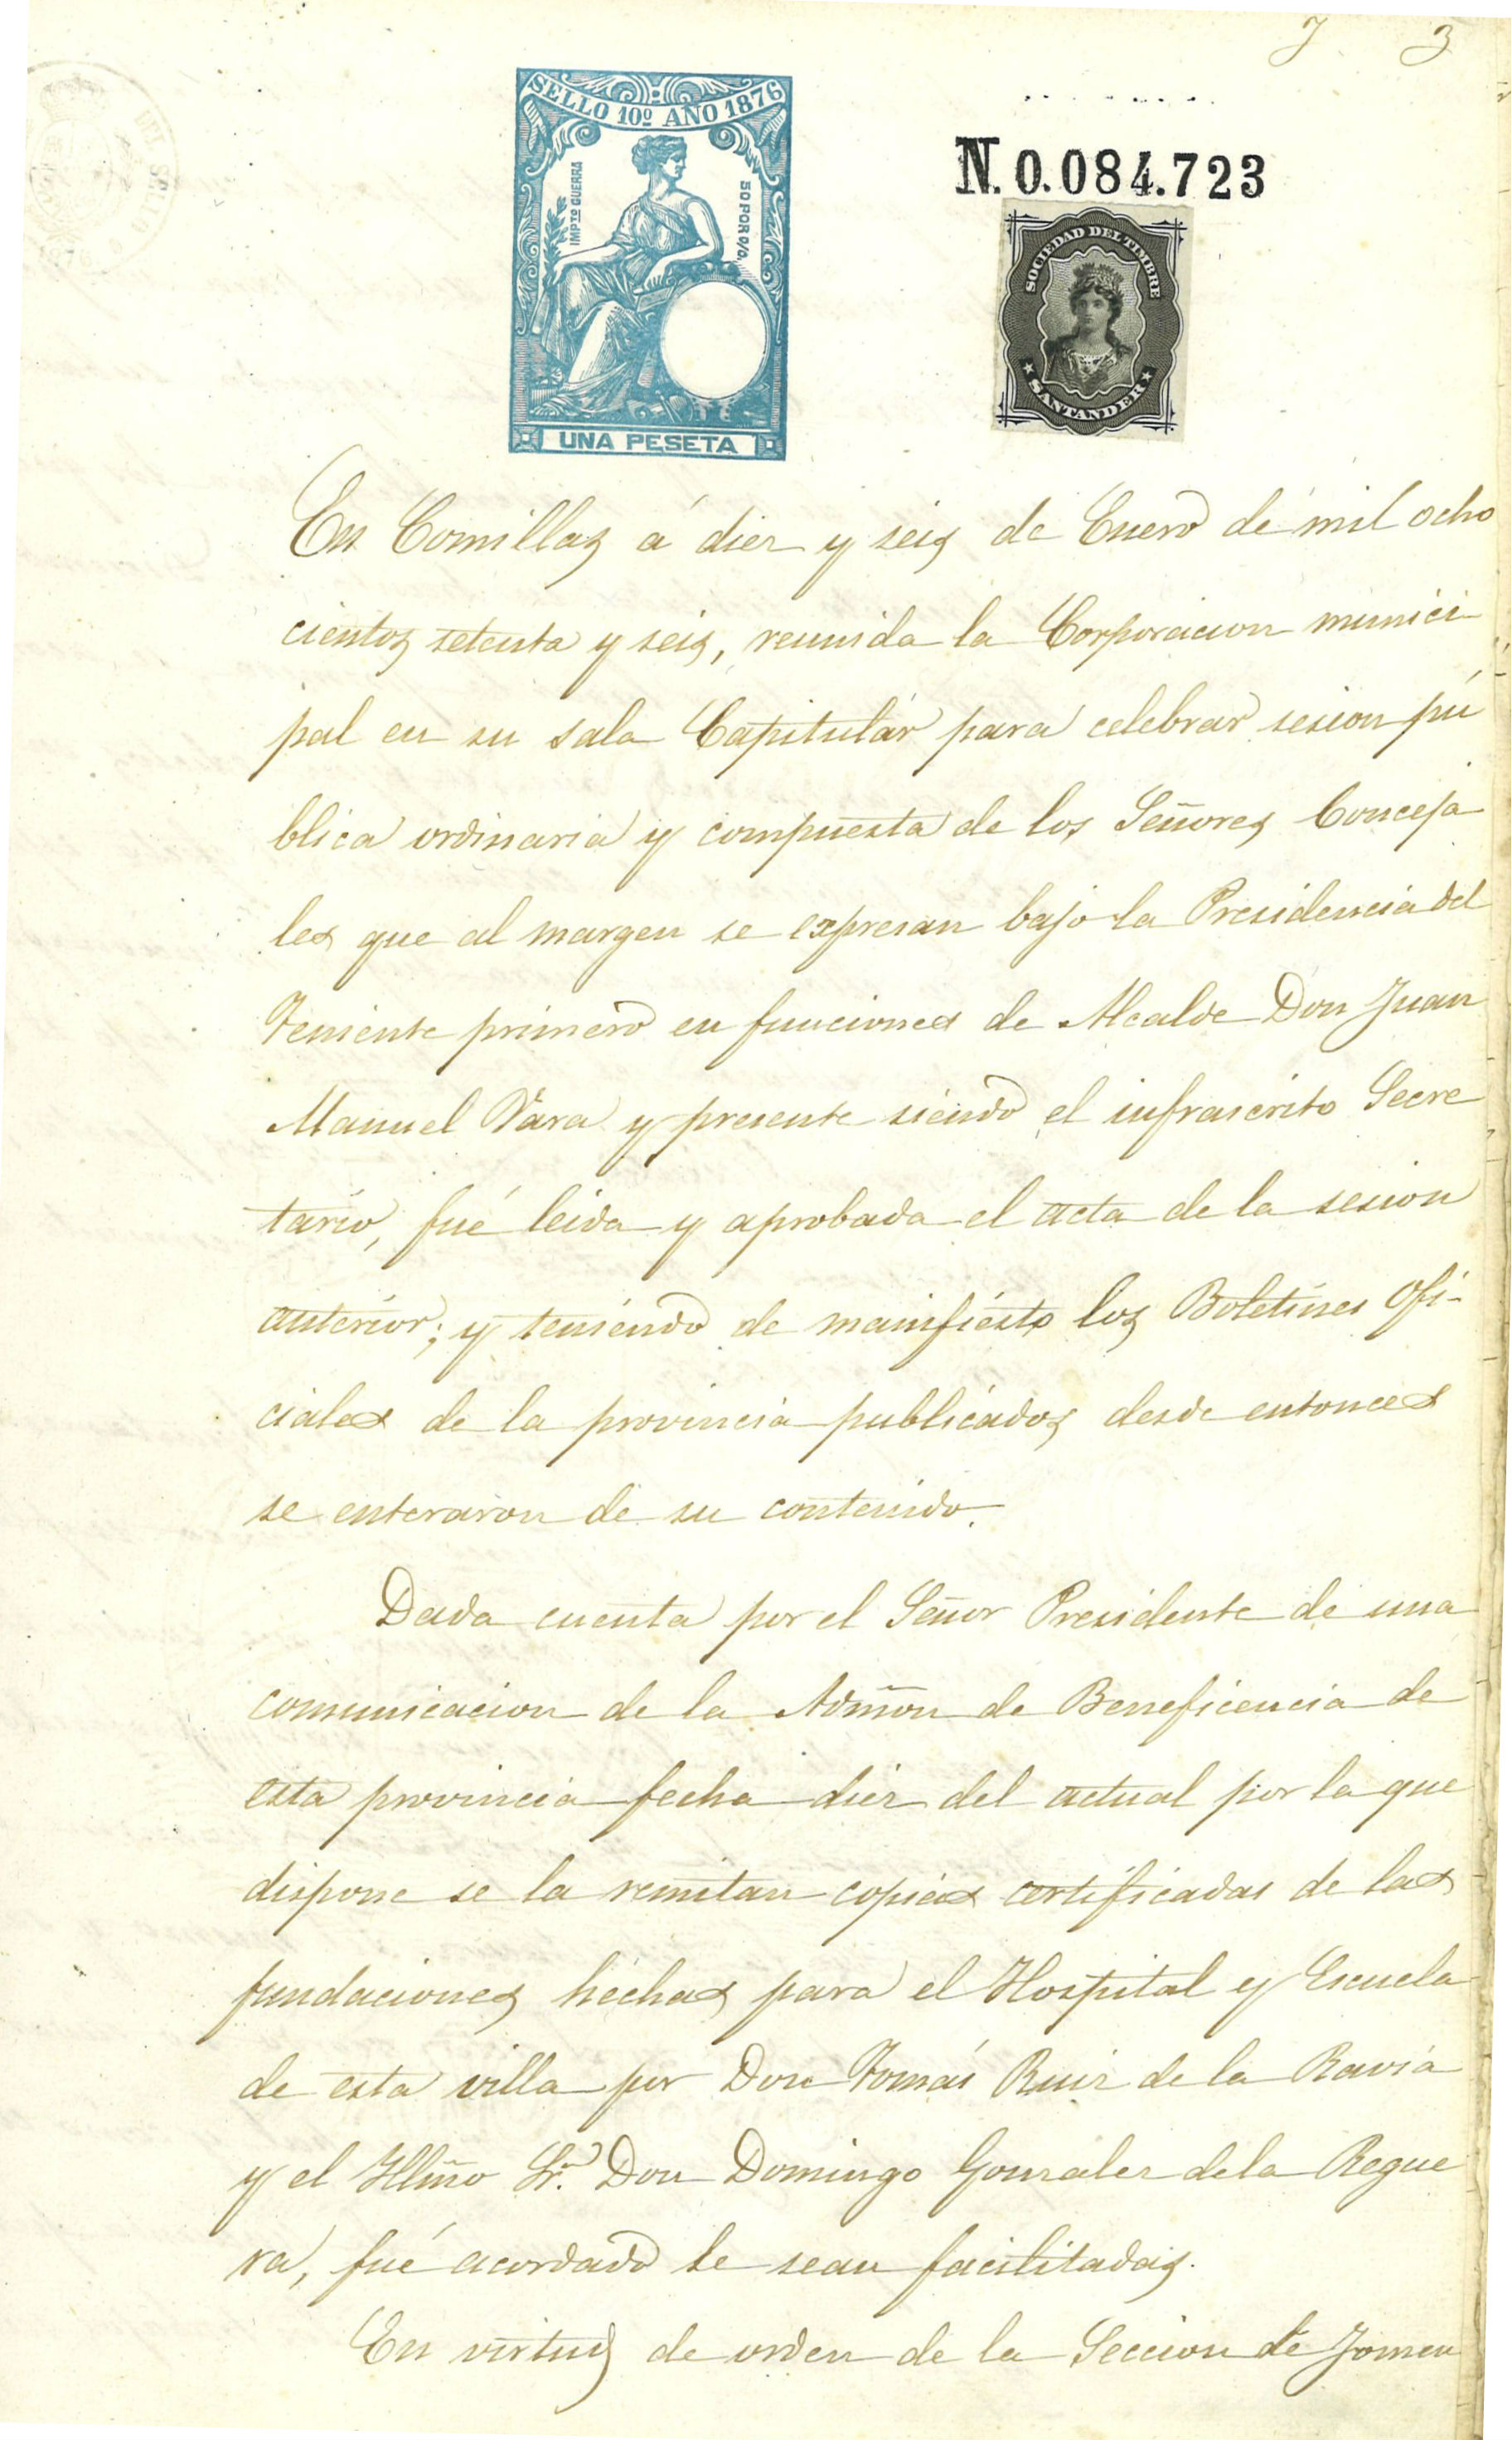 J 3
SELLO 10º AÑO 1876
IMPTO GUERRA
50 POR 0/0.
UNA PESETA
N. 0.084.723
SOCIEDAD DEL TIMBRE
SANTANDER
En Comillas á diez y seis de Enero de mil ocho
cientos setenta y seis, reunida la Corporacion munici
pal en su sala Capitular para celebrar sesion pú
blica ordinaria y compuesta de los Señores Conceja
les que al margen se expresan bajo la Presidencia del
Teniente primero en funciones de Alcalde Don Juan
Manuel Vara y presente siendo el infrascrito Secre
tario, fué leida y aprobada el acta de la sesion
anterior; y teniendo de manifiesto los Boletines Ofi-
ciales de la provincia publicados desde entonces
se enteraron de su contenido.
Dada cuenta por el Señor Presidente de una
comunicacion de la Admon de Beneficencia de
esta provincia fecha diez del actual por la que
dispone se la remitan copias certificadas de las
fundaciones hechas para el Hospital y Escuela
de esta villa por Don Tomás Ruiz de la Ravia
y el Illmo Sr. Don Domingo Gonzalez de la Regue
ra, fué acordado le sean facilitadas.
En virtud de orden de la Seccion de Fomen